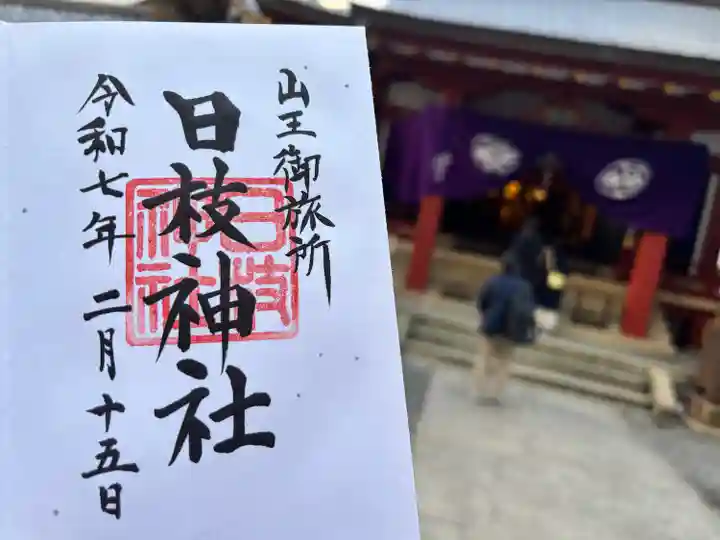 山王御旅所
日枝神社
日枝神社
令和七年 二月十五日